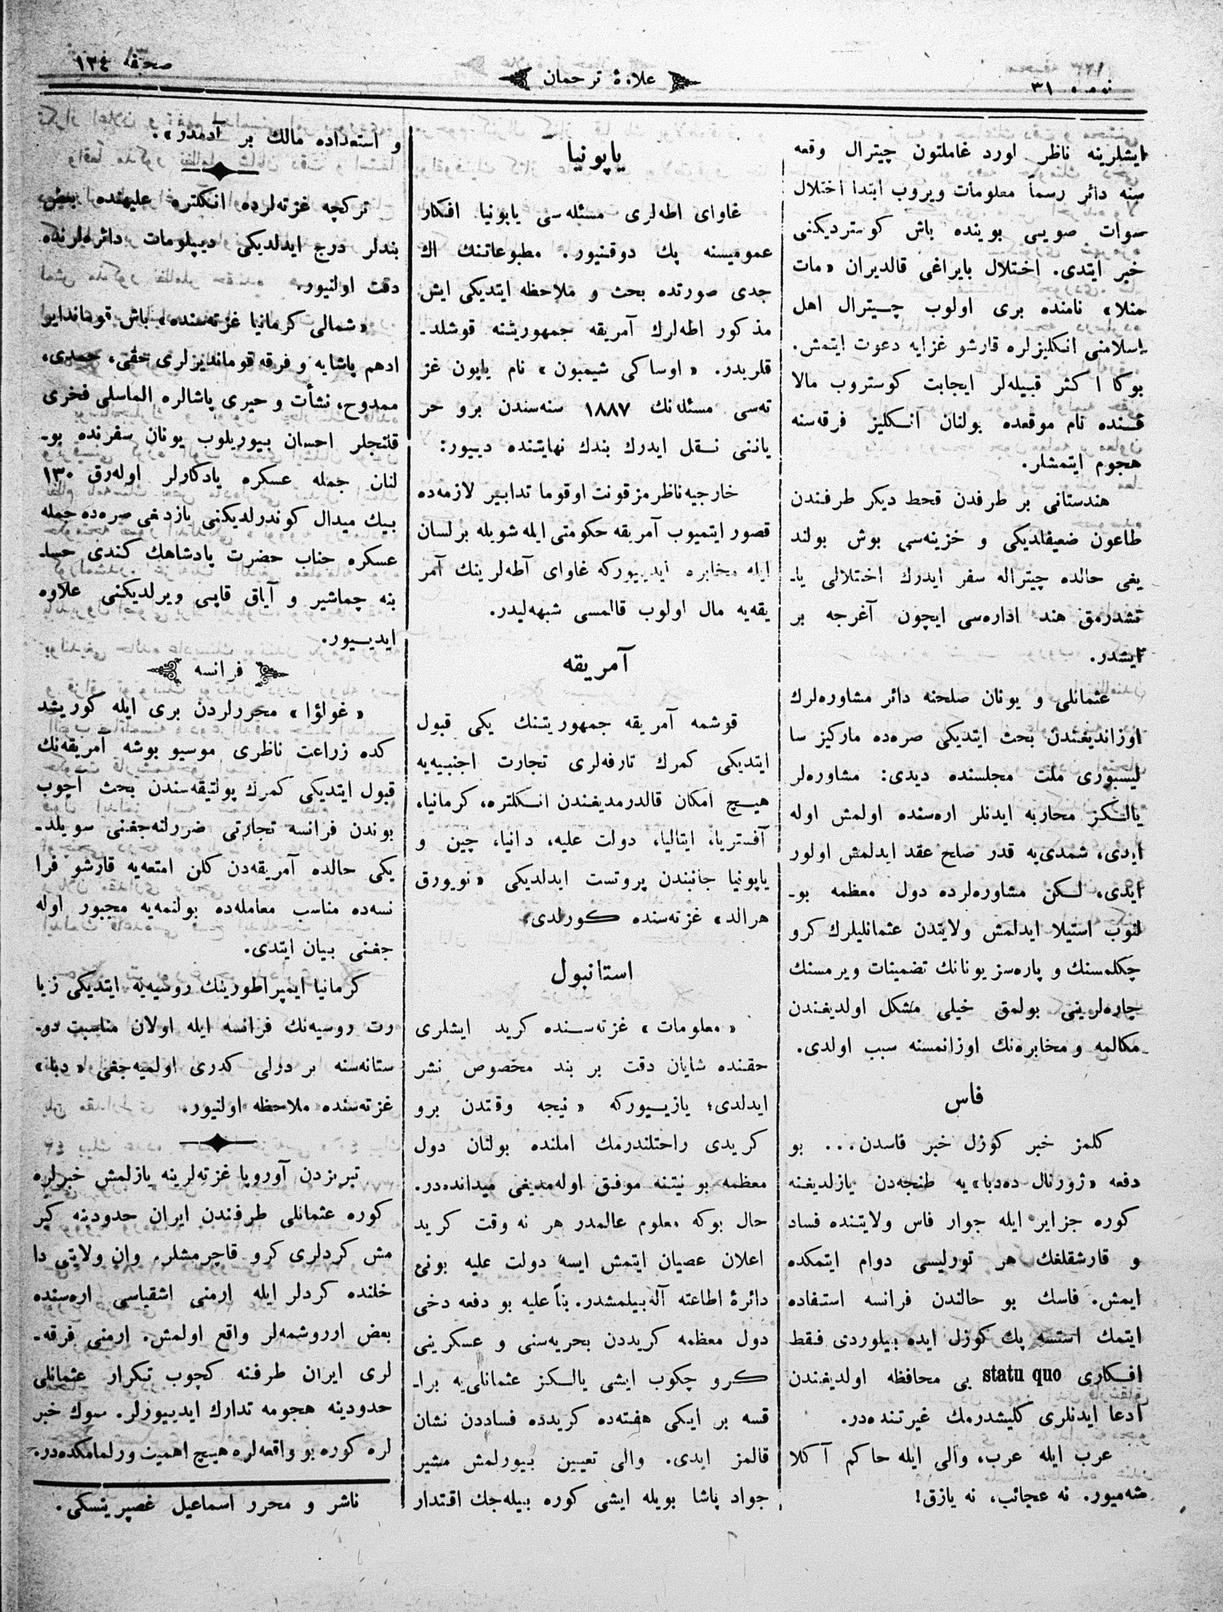 نومره ٣١
علاوهٔ ترجمان
صحیفه ١٣٤
ایشلرینه ناظر لورد غاملتون چیترال وقعه
سنه دائر رسماً معلومات ویروب ابتدا اختلال
سوات صویی بوینده باش کوستردیکنی
خبر ایتدی. اختلال بایراغی قالدیران «مات
منلا» نامنده بری اولوب چیترال اهل
اسلامنی انکلیزلره قارشو غزایه دعوت ایتمش.
بوکا اکثر قبیله‌لر ایجابت کوستروب مالا
قنده نام موقعده بولنان انکلیز فرقه‌سنه
هجوم ایتمشلر.
هندستانی بر طرفدن قحط دیکر طرفندن
طاعون ضعیفلدیکی و خزینه‌سی بوش بولند
یغی حالده چیتراله سفر ایدرك اختلالی یا-
تشدرمق هند اداره‌سی ایچون آغرجه بر
ایشدر.
عثمانلی و یونان صلحنه دائر مشاوره‌لرك
اوزاندیغندن بحث ایتدیکی صره‌ده مارکیز سا
لیسبوری ملت مجلسنده دیدی: مشاوره‌لر
یالکز محاربه ایدنلر اره‌سنده اولمش اوله
ایدی، شمدی‌یه قدر صلح عقد ایدلمش اولور
ایدی، لکن مشاوره‌لرده دول معظمه بو-
لنوب استیلا ایدلمش ولایتدن عثمانلیلرك کرو
چکلمسنك و پاره‌سز یونانك تضمینات ویرمسنك
چاره‌لرینی بولمق خیلی مشکل اولدیغندن
مکالمه و مخابره‌نك اوزانمسنه سبب اولدی.
فاس
کلمز خبر کوزل خبر فاسدن... بو
دفعه «ژورنال ده‌دبا»یه طنجه‌دن یازلدیغنه
کوره جزایر ایله جوار فاس ولایتنده فساد
و قارشقلغك هر تورلیسی دوام ایتمکده
ایمش. فاسك بو حالندن فرانسه استفاده
ایتمك استسه پك کوزل ایده بیلوردی فقط
افکاری statu quo یی محافظه اولدیغندن
ادعا ایدنلری کلیشدرمك غیرتنده‌در.
عرب ایله عرب، والی ایله حاکم آکلا
شه‌میور. نه عجائب، نه یازق!
یاپونیا
غاوای اطه‌لری مسئله‌سی یاپونیا افکار
عمومیسنه پك دوقنیور. مطبوعاتنك اك
جدی صورتده بحث و ملاحظه ایتدیکی ایش
مذکور اطه‌لرك آمریقه جمهوریتنه قوشلد.
قلریدر. «اوساکی شیمبون» نام یاپون غز
ته‌سی مسئله‌نك ١٨٨٧ سنه‌سندن برو جر
یاننی نقل ایدرك بندك نهایتنده دییور:
خارجیه‌ناظرمزقونت اوقوما تدابیر لازمه‌ده
قصور ایتمیوب آمریقه حکومتی ایله شویله برلسان
ایله مخابره ایدییورکه غاوای آطه‌لرینك آمر
یقه‌یه مال اولوب قالمسی شبهه‌لیدر.
آمریقه
قوشمه آمریقه جمهوریتنك یکی قبول
ایتدیکی کمرك تارفه‌لری تجارت اجنبیه‌یه
هیچ امکان قالدرمدیغندن انکلتره، کرمانیا،
آفستریا، ایتالیا، دولت علیه، دانیا، چین و
یاپونیا جانبندن پروتست ایدلدیکی «نویورق
هرالد» غزته‌سنده کورلدی.
استانبول
«معلومات» غزته‌سنده کرید ایشلری
حقنده شایان دقت بر بند مخصوص نشر
ایدلدی؛ یازییورکه «نیجه وقتدن برو
کریدی راحتلندرمك املنده بولنان دول
معظمه بو نیتنه موفق اوله‌مدیغی میدانده‌در.
حال بوکه معلوم عالمدر هر نه وقت کرید
اعلان عصیان ایتمش ایسه دولت علیه بونی
دائرهٔ اطاعته آله‌بیلمشدر. بناً علیه بو دفعه دخی
دول معظمه کریددن بحریه‌سنی و عسکرینی
کرو چکوب ایشی یالکز عثمانلی‌یه برا-
قسه بر ایکی هفته‌ده کریدده فساددن نشان
قالمز ایدی. والی تعیین بیورلمش مشیر
جواد پاشا بویله ایشی کوره بیله‌جك اقتدار
و استعداده مالك بر آدمدر».
ترکجه غزته‌لرده انکلتره علیهنده بعض
بندلر درج ایدلدیکی دیپلومات دائره‌لرنده
دقت اولنیور.
«شمالی کرمانیا غزته‌سنده» باش قوماندایو
ادهم پاشایه و فرقه قوماندیزلری حقی، حمدی،
ممدوح، نشأت و حیری پاشالره الماسلی فخری
قلنجلر احسان بیوریلوب یونان سفرنده بو-
لنان جمله عسکره یادکارلر اوله‌رق ١٣٠
بیك میدال کوندرلدیکنی یازدغی صره‌ده جمله
عسکره جناب حضرت پادشاهك کندی حسا-
بنه چماشیر و آیاق قاپی ویرلدیکنی علاوه
ایدییور.
فرانسه
«غولؤا» محررلردن بری ایله کوریشد
کده زراعت ناظری موسیو بوشه آمریقه‌نك
قبول ایتدیکی کمرك پولتیقه‌سندن بحث آچوب
بوندن فرانسه تجارتی ضررلنه‌جغنی سویلد-
یکی حالده آمریقه‌دن کلن امتعه‌یه قارشو فرا
نسه‌ده مناسب معامله‌ده بولنمه‌یه مجبور اوله
جغنی بیان ایتدی.
کرمانیا ایمپراطورینك روسیه‌یه ایتدیکی زیا
رت روسیه‌نك فرانسه ایله اولان مناسبت دو-
ستانه‌سنه بر درلی کدری اولمیه‌جغی «دبا»
غزته‌سنده ملاحظه اولنیور.
تبریزدن آوروپا غزته‌لرینه یازلمش خبرلره
کوره عثمانلی طرفندن ایران حدودینه کیر
مش کردلری کرو قاچرمشلر. وان ولایتی دا
خلنده کردلر ایله ارمنی اشقیاسی اره‌سنده
بعض ارروشمه‌لر واقع اولمش. ارمنی فرقه-
لری ایران طرفنه کچوب تکرار عثمانلی
حدودینه هجومه تدارك ایدییورلر. سوك خبر
لره کوره بو واقعه‌لره هیچ اهمیت ورلمامکده‌در.
ناشر و محرر اسماعیل غصپرینسکی.